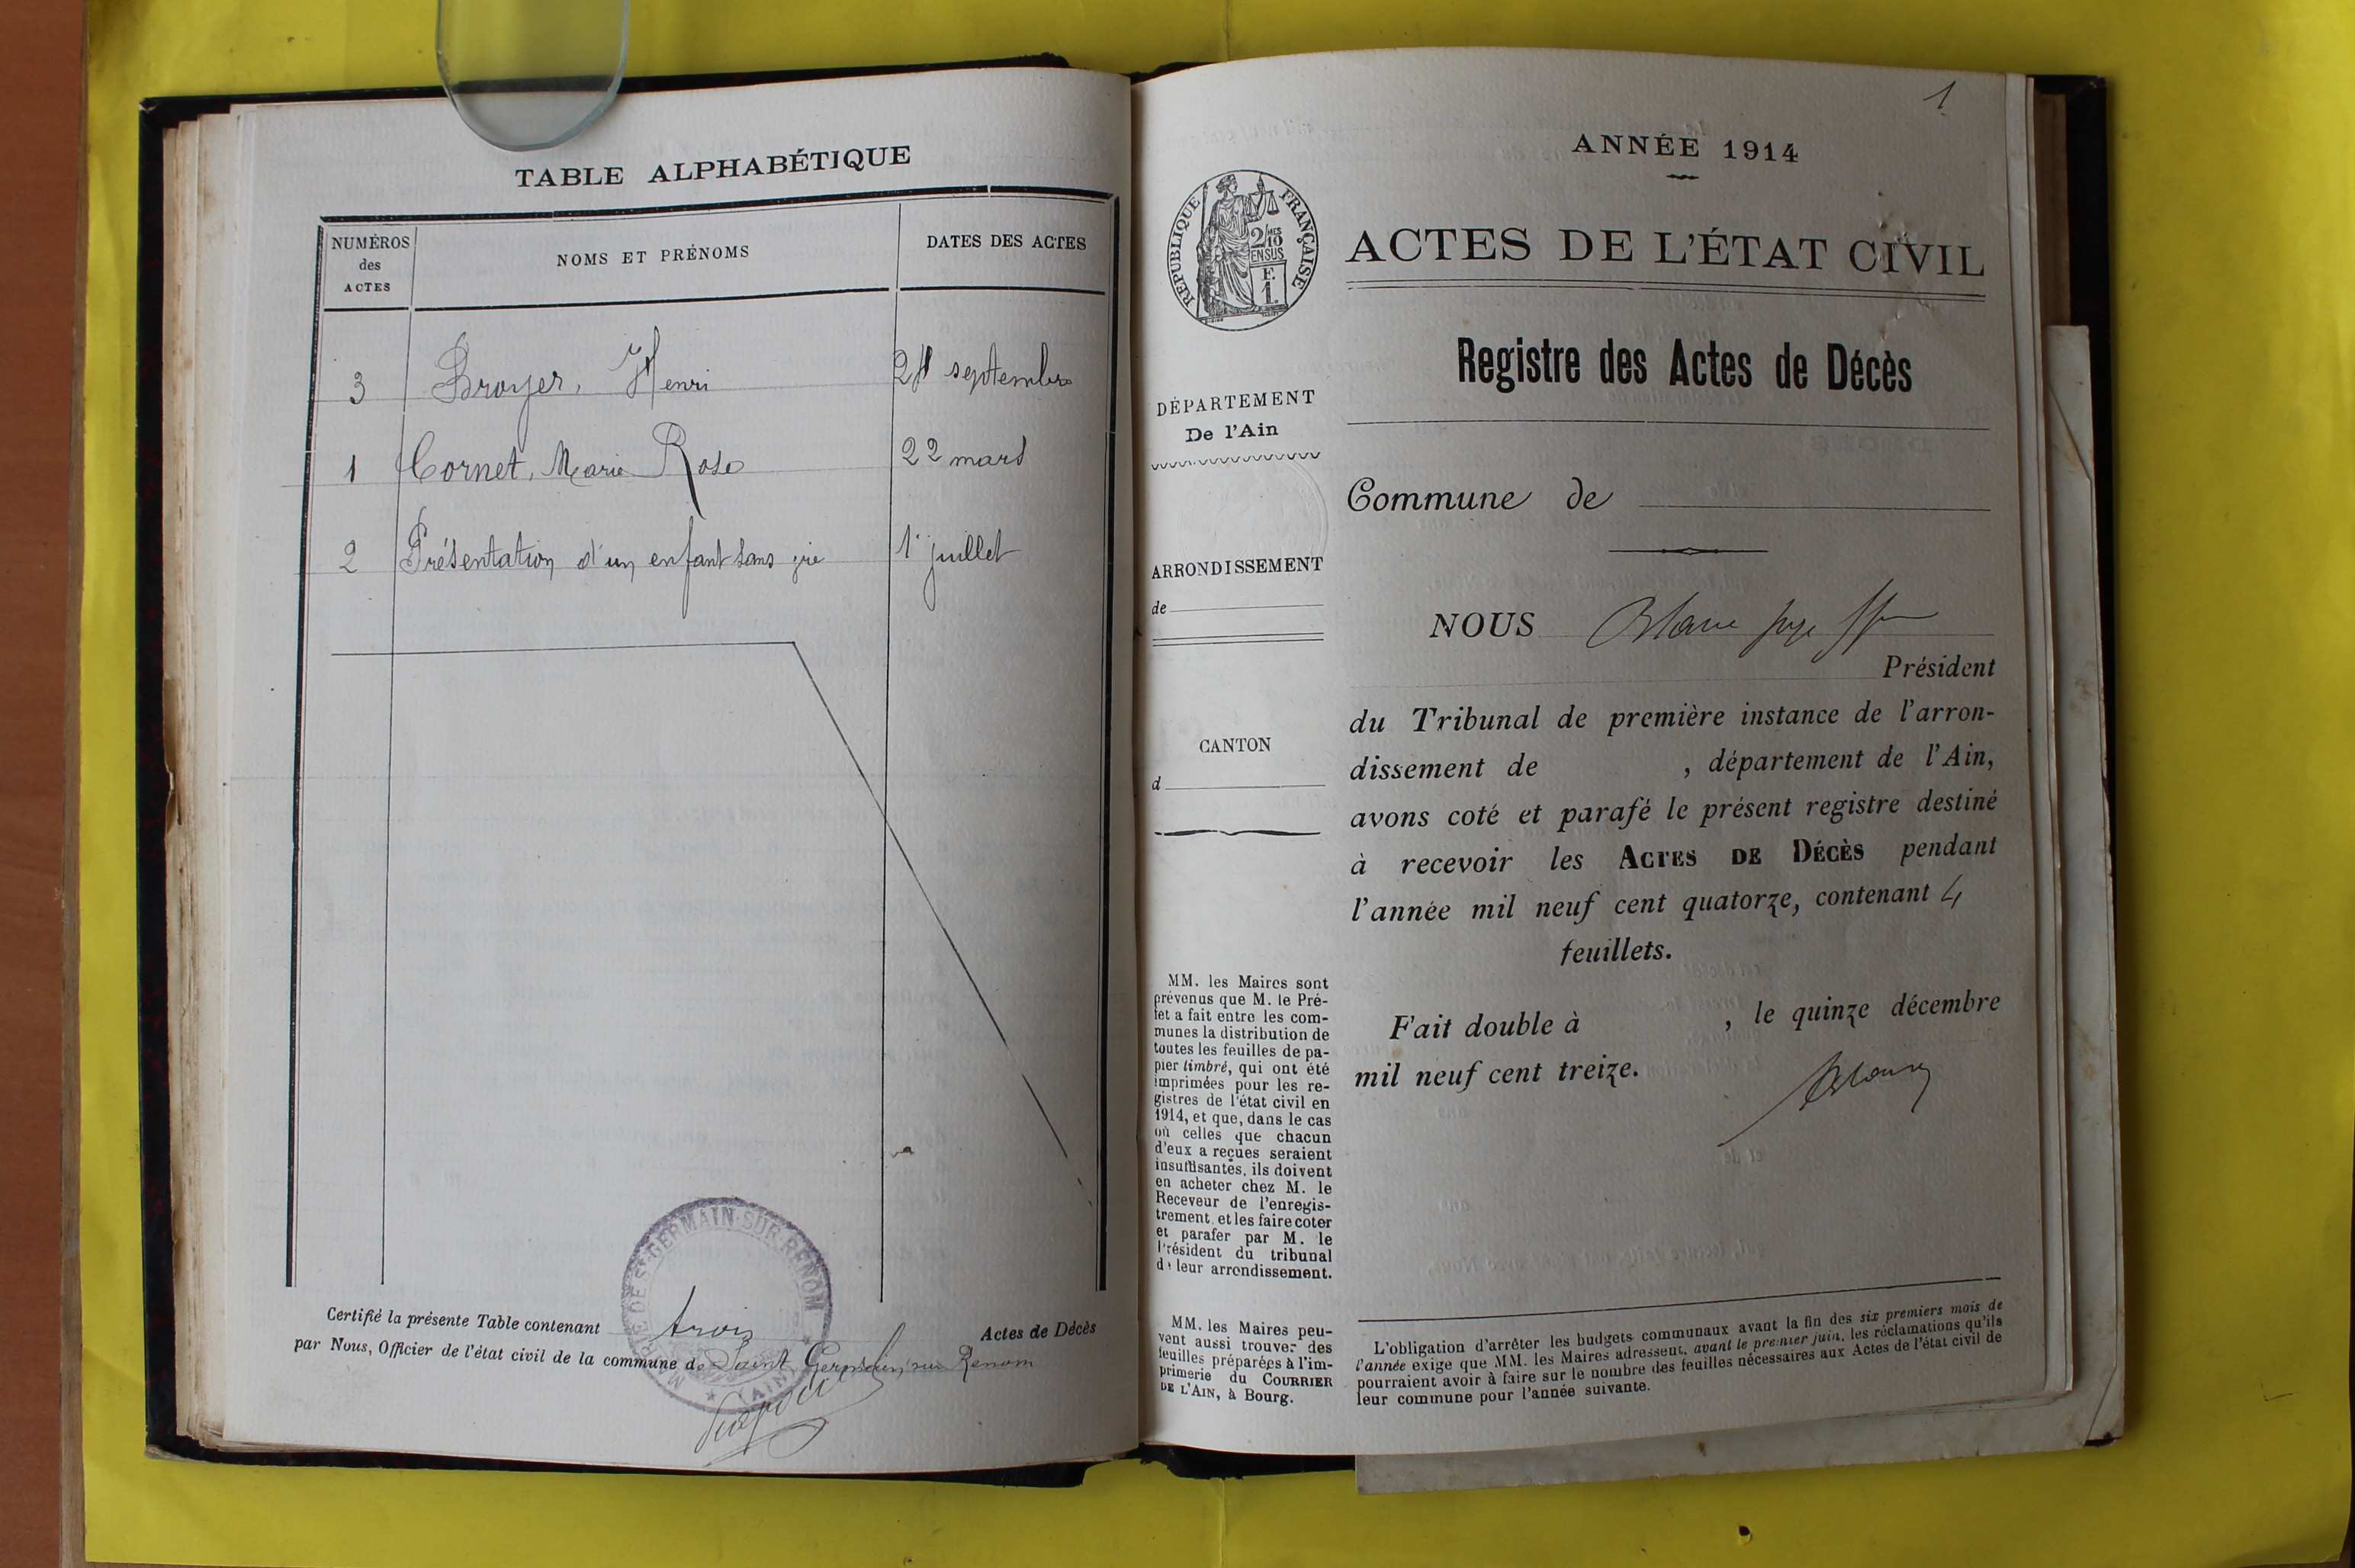 TABLE ALPHABÉTIQUE
NUMÉROS
des
ACTES
NOMS ET PRÉNOMS
DATES DES ACTES
3 Broyer, Henri septembre
1 Cornet, Marie Rose 22 mars
2 Présentation d'un enfant sans vie 1er juillet
MAIRIE DE ST GERMAIN-SUR-RENOM
(AIN)
Certifié la présente Table contenant trois Actes de Décès
par Nous, Officier de l'état civil de la commune de Saint Germain sur Renom
1
ANNÉE 1914
RÉPUBLIQUE FRANÇAISE
2/10 MES
EN SUS
F.
1.
ACTES DE L'ÉTAT CIVIL
Registre des Actes de Décès
DÉPARTEMENT
De l'Ain
Commune de
ARRONDISSEMENT
de
NOUS
Président
du Tribunal de première instance de l'arron-
dissement de , département de l'Ain,
avons coté et parafé le présent registre destiné
à recevoir les ACTES DE DÉCÈS pendant
l'année mil neuf cent quatorze, contenant 4
feuillets.
Fait double à , le quinze décembre
mil neuf cent treize.
CANTON
d
MM. les Maires sont
prévenus que M. le Pré-
fet a fait entre les com-
munes la distribution de
toutes les feuilles de pa-
pier timbré, qui ont été
imprimées pour les re-
gistres de l'état civil en
1914, et que, dans le cas
où celles que chacun
d'eux a reçues seraient
insuffisantes, ils doivent
en acheter chez M. le
Receveur de l'enregis-
trement, et les faire coter
et parafer par M. le
Président du tribunal
de leur arrondissement.
MM. les Maires peu-
vent aussi trouver des
feuilles préparées à l'im-
primerie du COURRIER
DE L'AIN, à Bourg.
L'obligation d'arrêter les budgets communaux avant la fin des six premiers mois de
l'année exige que MM. les Maires adressent, avant le premier juin, les réclamations qu'ils
pourraient avoir à faire sur le nombre des feuilles nécessaires aux Actes de l'état civil de
leur commune pour l'année suivante.